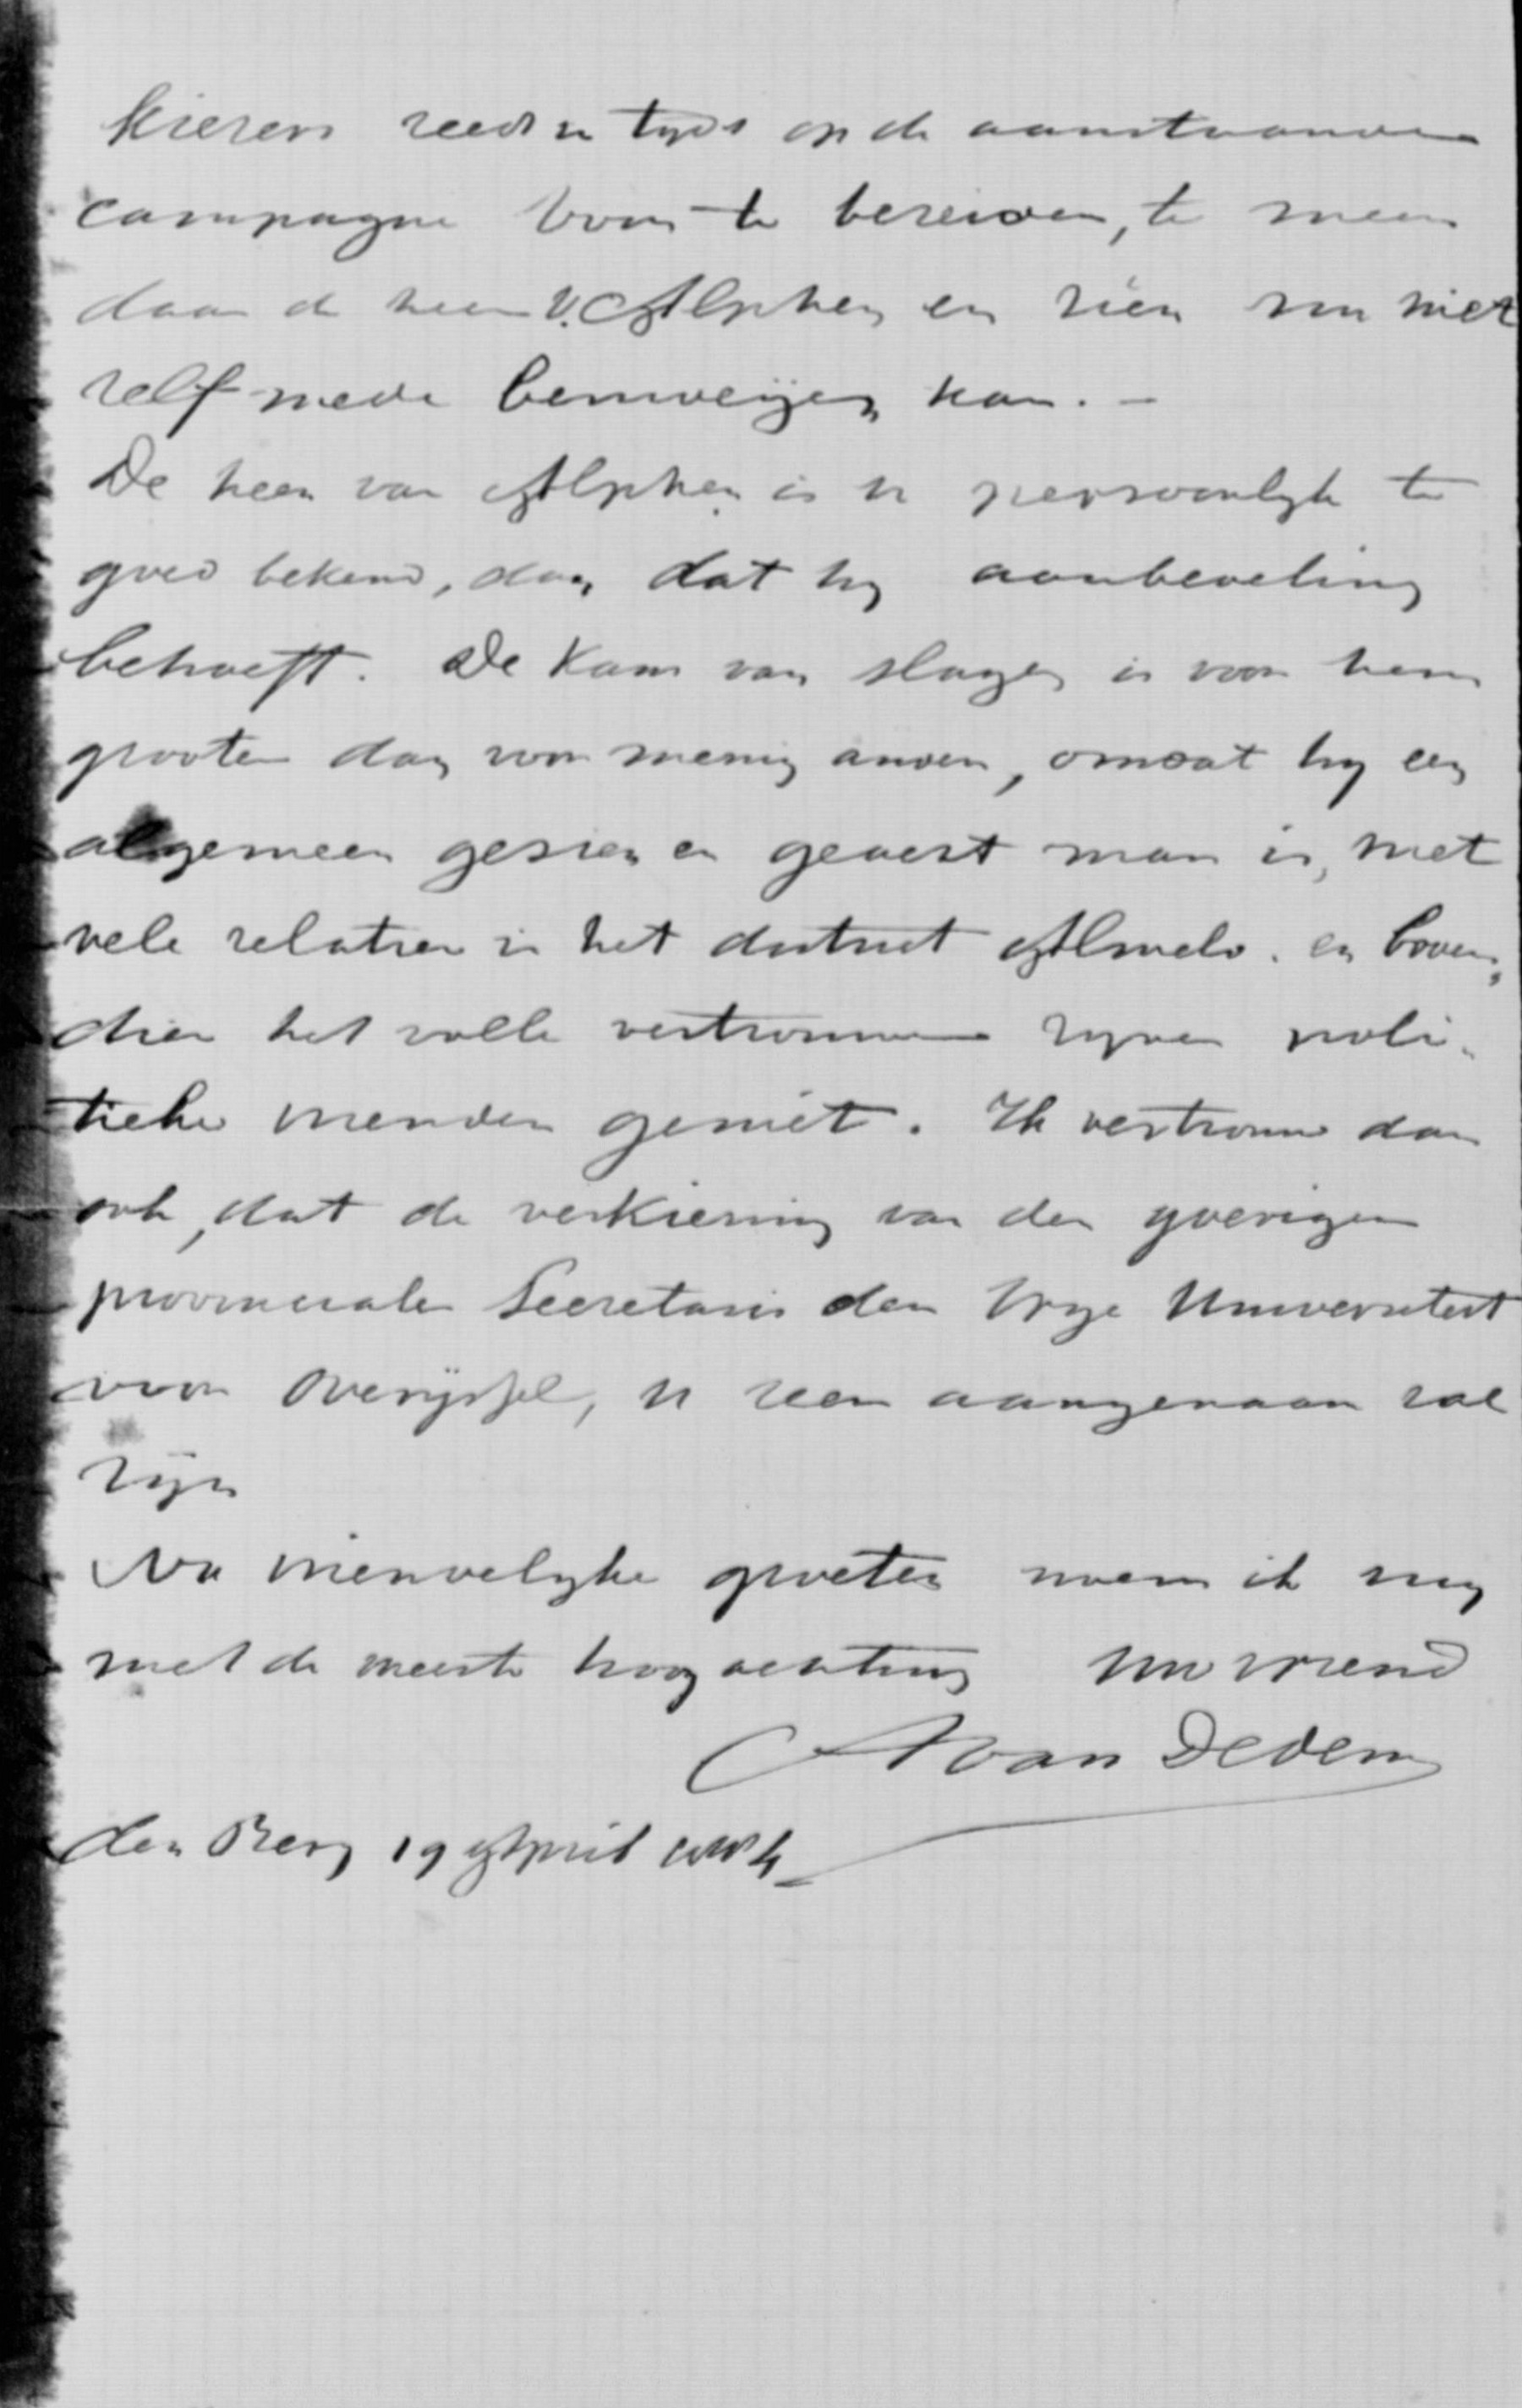 kiezers reeds in tyds op de aanstaande
campagne voor te bereiden, te meer
daar de heer V. Alphen en zien nu niet
zelf mede bemoeijen kan. –
De heer van Alphen is U persoonlyk te
goed bekend, dan dat hy aanbeveling
behoeft. De Kans van slagen is voor hem
grooter dan voor menig ander, omdat hy een
algemeen gezien en geacht man is, met
vele relatien in het district Almelo. en boven,
dien het volle vertrouwen zyner poli-
tieke vrienden geniet. Ik vertrouw dan
ook, dat de verkiezing van den yverigen
provincialen Secretaris der Vrye Universiteit
voor Overijssel, U zeer aangenaam zal
zijn
Na vriendelyke groeten noem ik my
met de meeste hoogachting Uw vriend
A van Dedem
den Berg 19 April